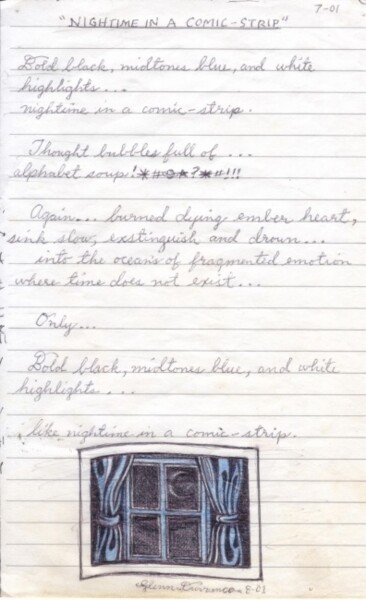 7-01
"NIGHTIME IN A COMIC-STRIP"
Bold black, midtones blue, and white
highlights...
nightime in a comic-strip.
Thought bubbles full of ...
alphabet soup!*#@*?*#!!!
Again... burned dying ember heart,
sink slow, exstinguish and drown...
into the oceans of fragmented emotion
where time does not exist...
Only...
Bold black, midtones blue, and white
highlights...
like nightime in a comic-strip.
Glenn 8-01